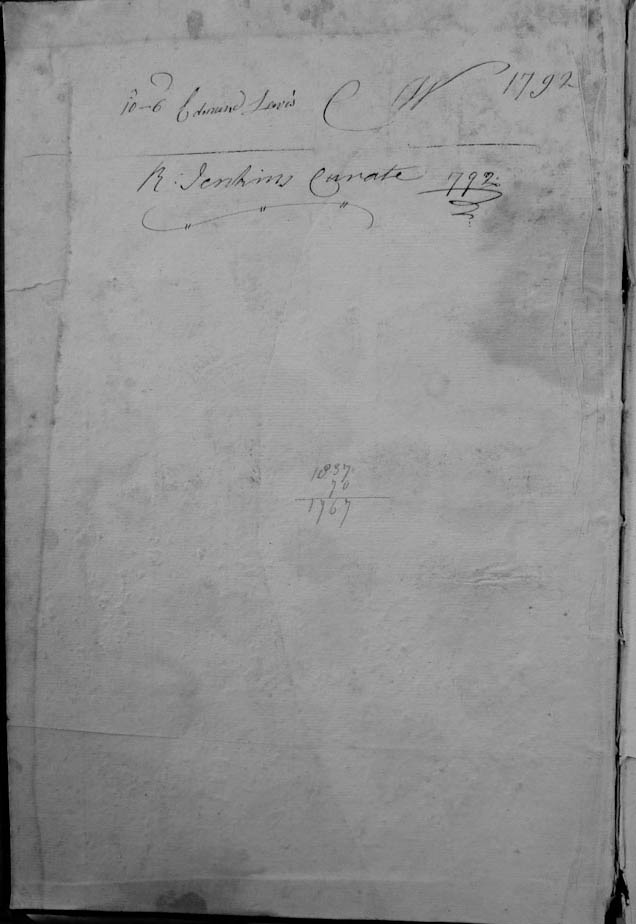 10-6 Edmund Lewis CW 1792
R: Jenkins Curate 1792:
1837
70
1767